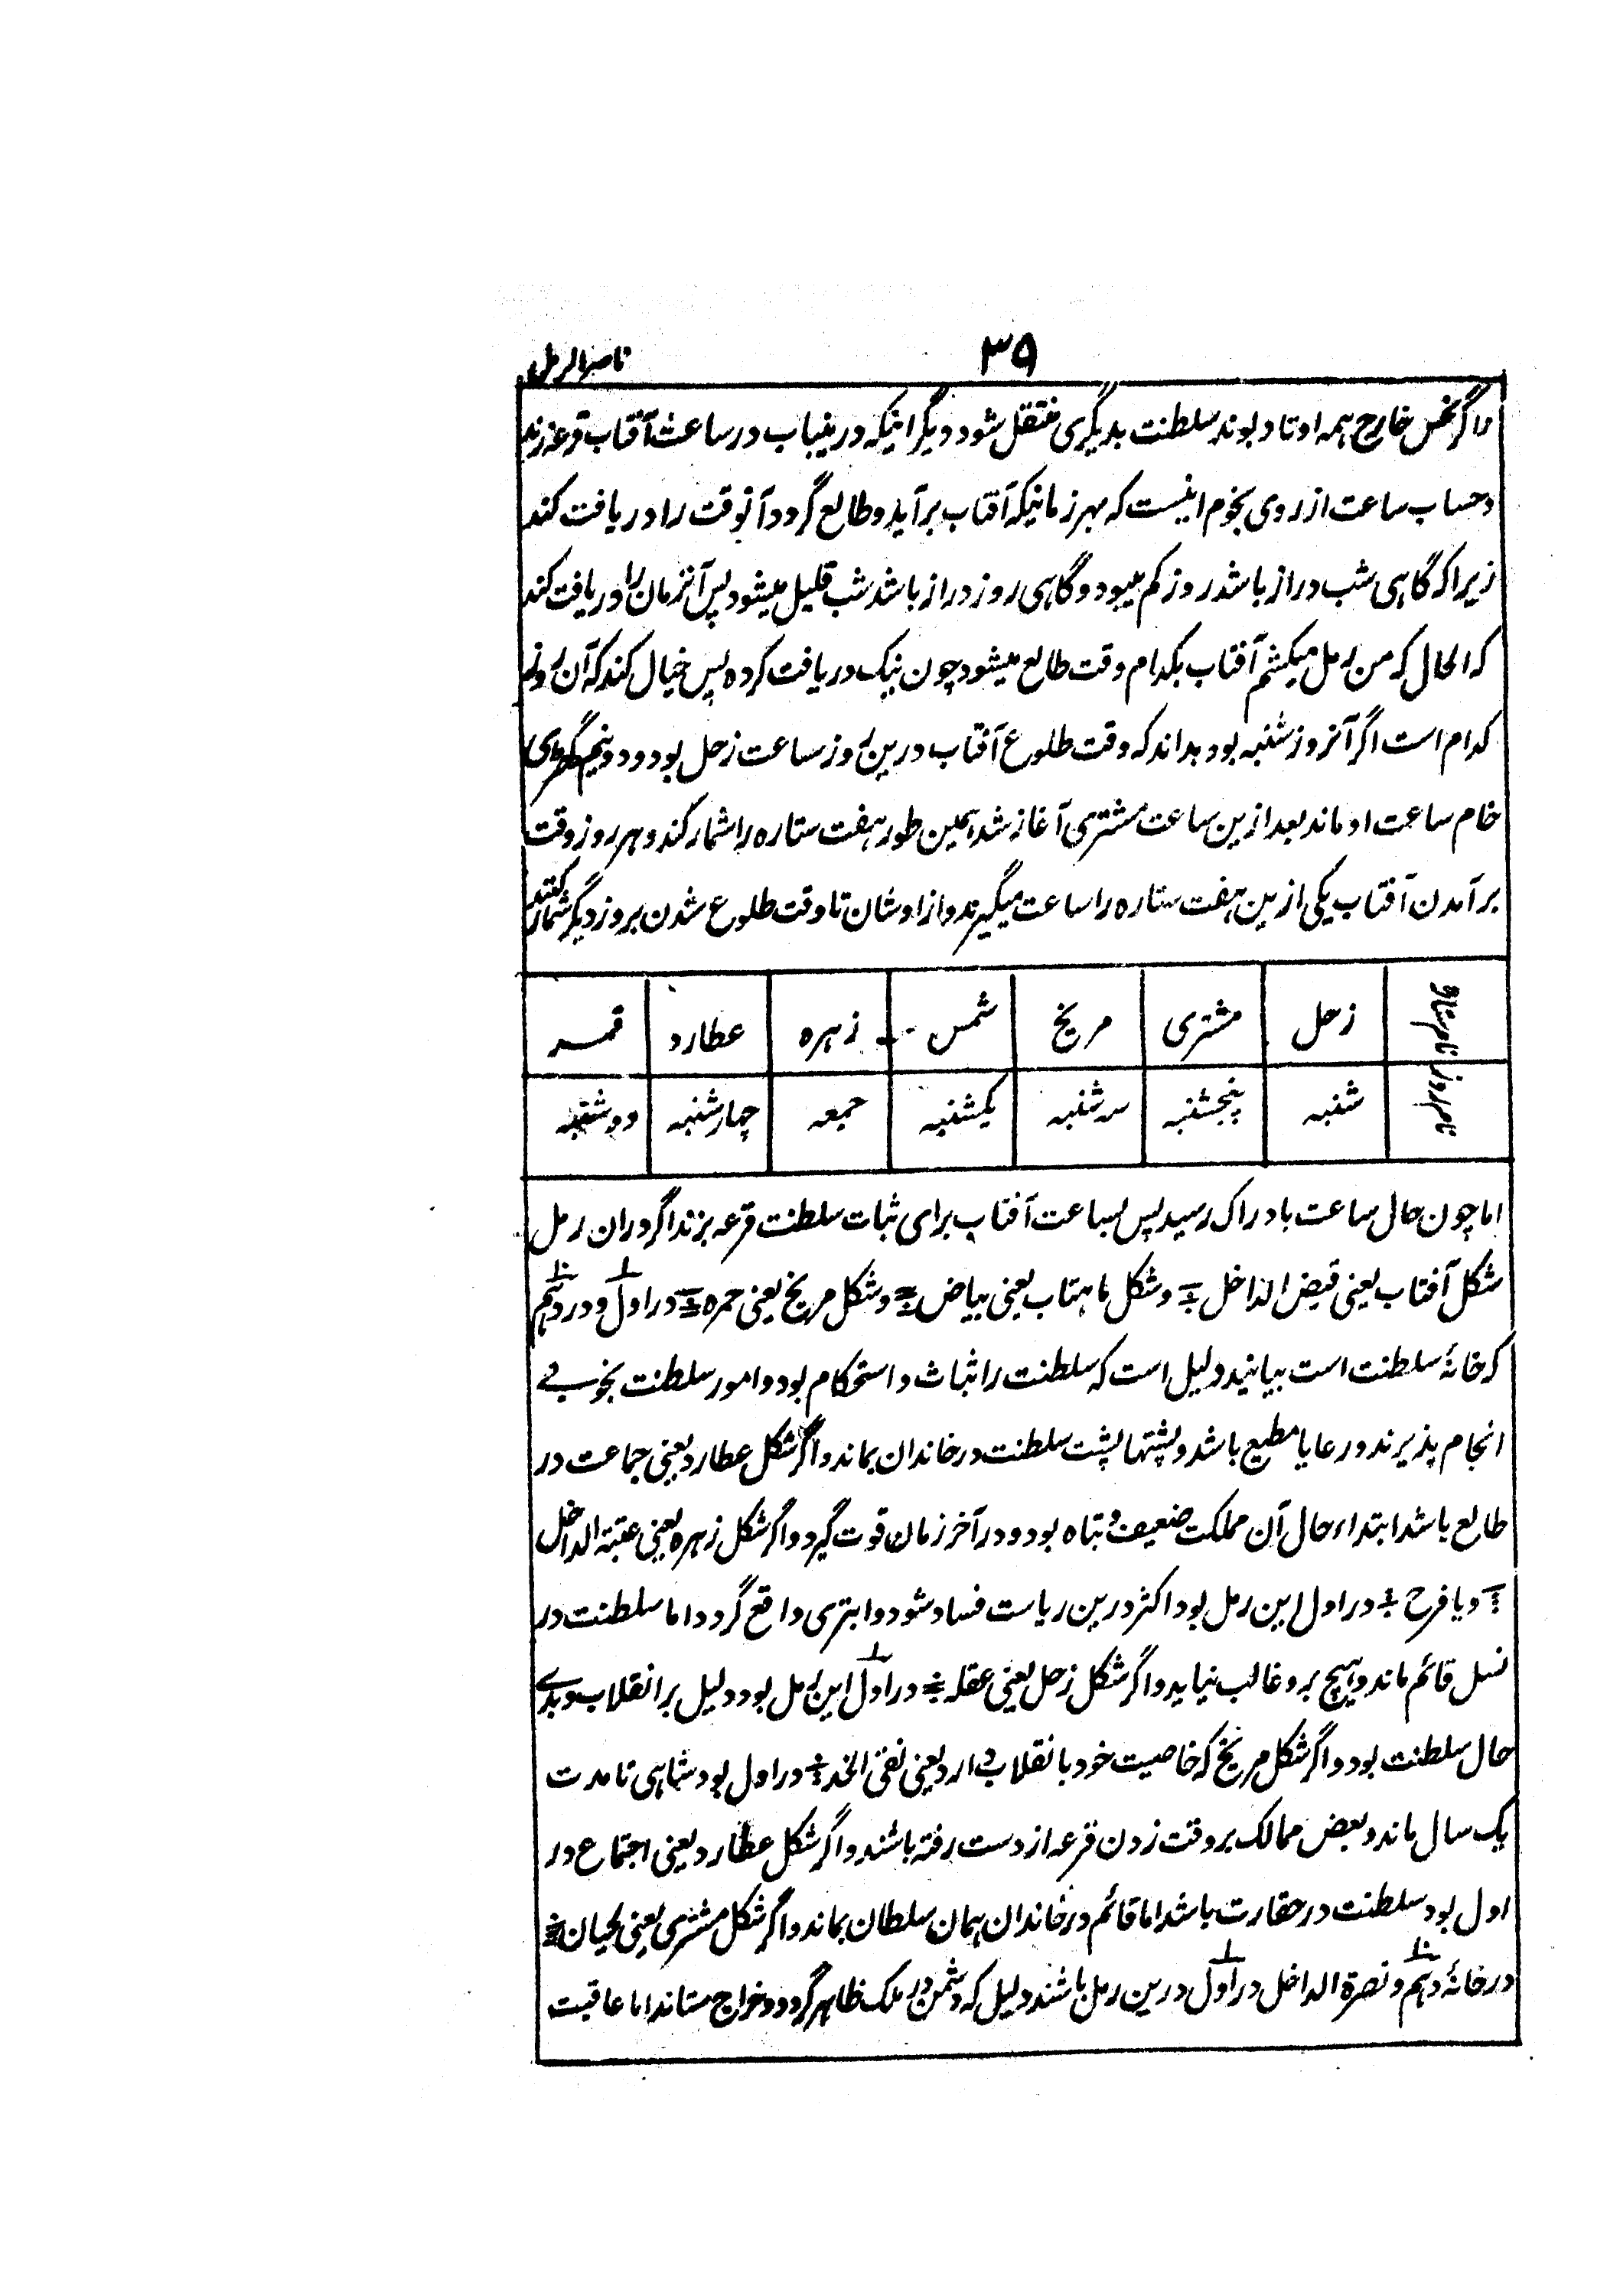 ۳۹
ناصر الرمل
واگر نحس خارج همه اوتاد بوند سلطنت بدیگری منتقل شود و دیگر اینکه درینباب در ساعت آفتاب قرعه زند
و حساب ساعت از روی نجوم اینست که بهر زمانیکه آفتاب برآید و طالع گردد آنوقت را دریافت کند
زیرا که گاهی شب دراز باشد روز کم میبود و گاهی روز دراز باشد شب قلیل میشود پس آنزمان را دریافت کند
که الحال که من رمل میکشم آفتاب بکدام وقت طالع میشود چون نیک دریافت کرده پس خیال کند که آن روز
کدام است اگر آنروز شنبه بود بداند که وقت طلوع آفتاب درین روز ساعت زحل بود و دو نیم گهڑی
خام ساعت او ماند بعد ازین ساعت مشتری آغاز شد همین طور هفت ستاره را شمار کند و هر روز وقت
برآمدن آفتاب یکی ازین هفت ستاره را ساعت میگیرند و از اوشان تا وقت طلوع شدن بروز دیگر شمار کنند
نام ستاره زحل مشتری مریخ شمس زهره عطارد قمر
نام روز شنبه پنجشنبه سه شنبه یکشنبه جمعه چهارشنبه دوشنبه
اما چون حال ساعت بادراک رسید پس بساعت آفتاب برای ثبات سلطنت قرعه بزند اگر دران رمل
شکل آفتاب یعنی قبض الداخل و شکل ماهتاب یعنی بیاض و شکل مریخ یعنی حمره در اول و در دهم
که خانهٔ سلطنت است بیایند دلیل است که سلطنت را ثبات و استحکام بود و امور سلطنت بخوبی
انجام پذیرند و رعایا مطیع باشد و پشتها پشت سلطنت در خاندان بماند و اگر شکل عطارد یعنی جماعت در
طالع باشد ابتداء حال آن مملکت ضعیف و تباه بود و در آخر زمان قوت گیرد و اگر شکل زهره یعنی عتبة الداخل
و یا فرح در اول این رمل بود اکثر درین ریاست فساد شود و ابتری واقع گردد اما سلطنت در
نسل قائم ماند و هیچ برو غالب نیاید و اگر شکل زحل یعنی عقله در اول این رمل بود دلیل بر انقلاب و بدے
حال سلطنت بود و اگر شکل مریخ که خاصیت خود بانقلاب دارد یعنی نقی الخد در اول بود شاهی تا مدت
یک سال ماند و بعض ممالک بر وقت زدن قرعه از دست رفته باشند و اگر شکل عطارد یعنی اجتماع در
اول بود سلطنت در حقارت باشد اما قائم در خاندان همان سلطان بماند و اگر شکل مشتری یعنی لحیان
در خانهٔ دهم و نصرة الداخل در اول درین رمل باشند دلیل که دشمن در ملک ظاهر گردد و خراج ستاند اما عاقبت